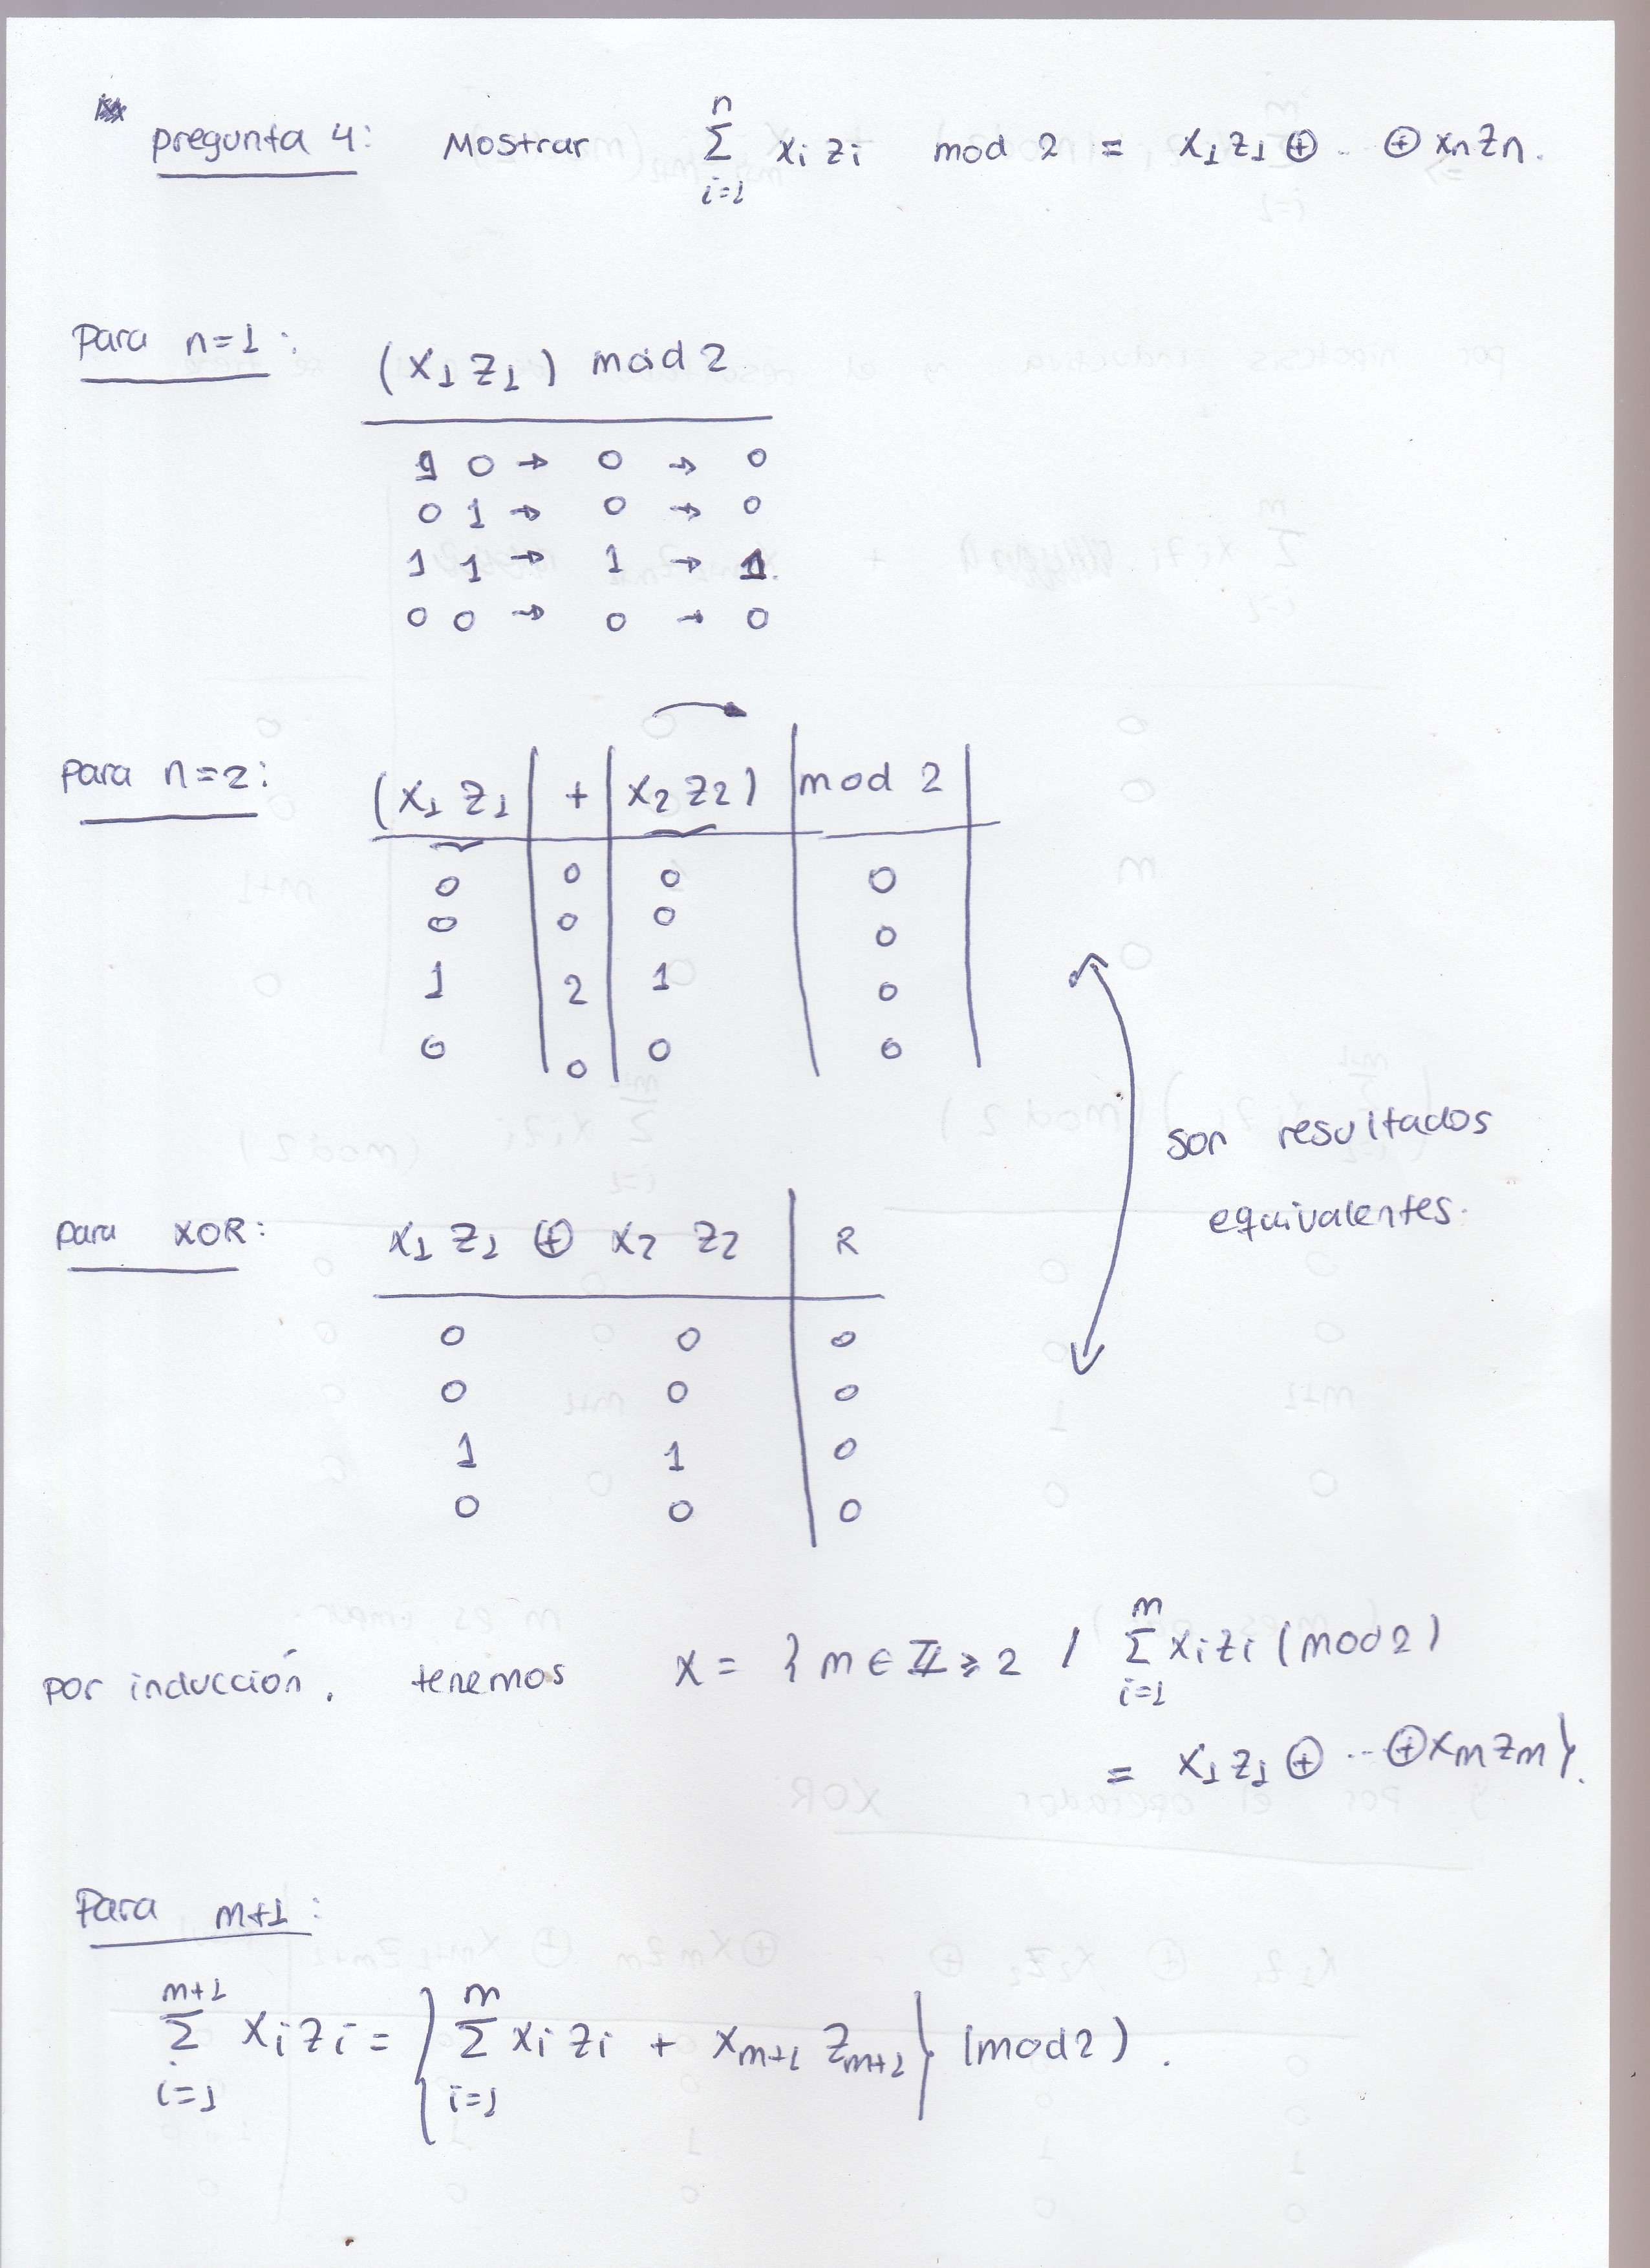 pregunta 4: Mostrar n Σ i=1 xi zi mod 2 = x1 z1 ⊕ ... ⊕ xn zn.
Para n=1: (x1 z1) mod 2
1 0 → 0 → 0
0 1 → 0 → 0
1 1 → 1 → 1.
0 0 → 0 → 0
Para n=2: (x1 z1 | + | x2 z2) | mod 2 |
0 | 0 | 0 | 0
0 | 0 | 0 | 0
1 | 2 | 1 | 0
0 | 0 | 0 | 0
son resultados
equivalentes.
Para XOR: x1 z1 ⊕ x2 z2 | R
0 0 | 0
0 0 | 0
1 1 | 0
0 0 | 0
por inducción, tenemos X = { m ∈ Z ≥ 2 / m Σ i=1 xi zi (mod 2)
= x1 z1 ⊕ ... ⊕ xm zm }.
Para m+1:
m+1 Σ i=1 xi zi = { m Σ i=1 xi zi + xm+1 zm+1 } (mod 2).